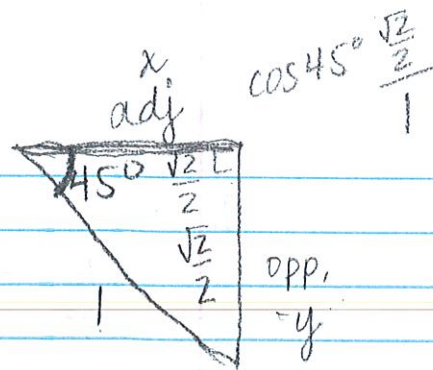 x
adj
cos45° √2/2
1
45° √2/2
√2/2
opp,
-y
1